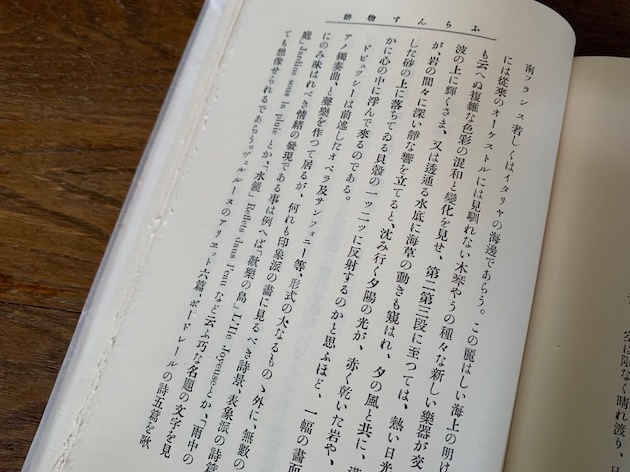 空は限なく晴れ渡り、日
ふらんす物語
南フランス若しくはイタリヤの海邊であらう。この麗はしい海上の明け
には從來のオーケストルには見馴れない木琴やうの種々な新しい樂器が交
も云へぬ複雜な色彩の混和と變化を見せ、第二第三段に至つては、熱い日光
波の上に輝くさま、又は透通る水底に海草の動きも窺はれ、夕の風と共に、
が、岩の間々に深い靜な響を立てると、沈み行く夕陽の光が、赤く乾いた岩や、
した砂の上に落ちてゐる貝殼の一ッ二ッに反射するのかと思ふほど、一幅の畫面
かに心の中に浮んで來るのである。
ドビュッシーは前述したオペラ及サンフォニー等、形式の大なるものゝ外に、無數の
アノ獨奏曲、と聲樂を作つて居るが、何れも印象派の畫に見るべき詩景、表象派の詩篇
にのみ味はれべき情緒の發現である事は例へば「歡樂の島」L'Ile Joyeuse とか、「雨中の
庭」Jardins sous la pluie とか、「水鏡」Reflets dans l'eau など云ふ巧な名題の文字を見
ても想像せられるであらう。ヴェルレーヌのアリエット六篇、ボードレールの詩五篇を歌